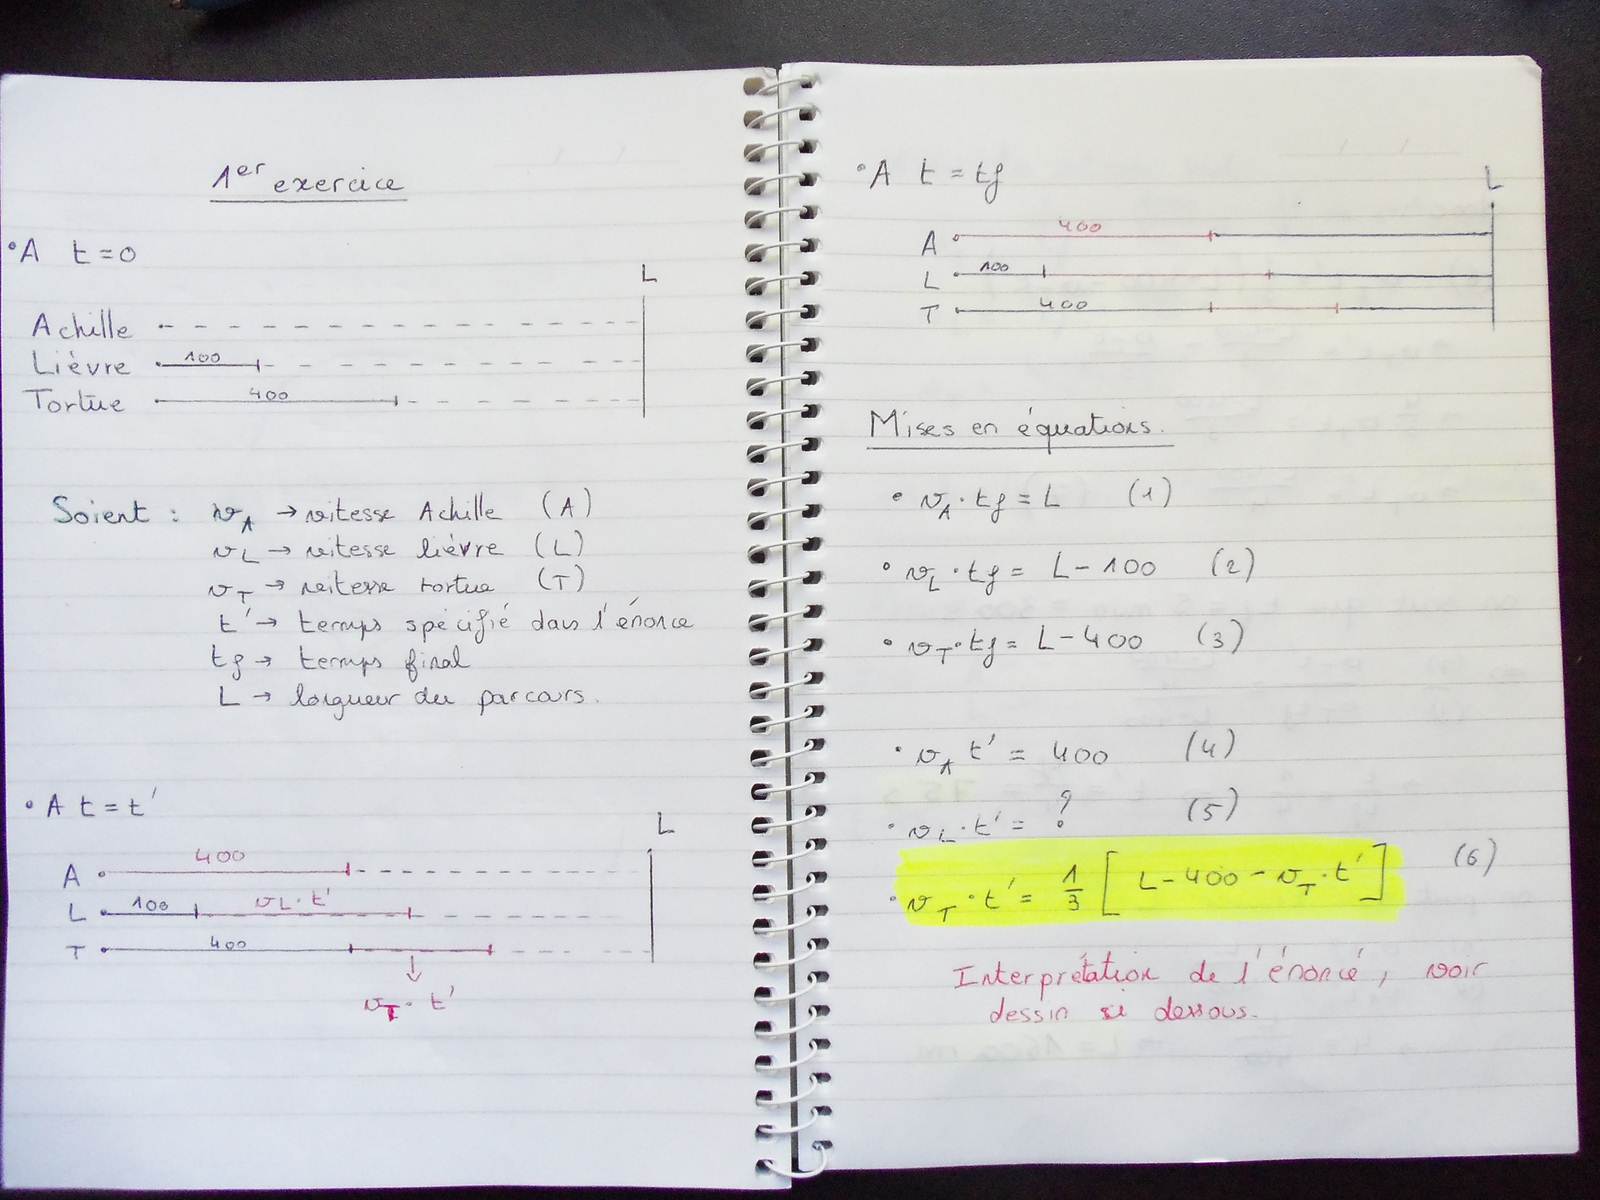 1er exercice
• A t = 0
L
Achille
Lièvre 100
Tortue 400
Soient : vA → vitesse Achille (A)
vL → vitesse lièvre (L)
vT → vitesse tortue (T)
t' → temps spécifié dans l'énoncé
tf → temps final
L → longueur du parcours.
• A t = t'
L
A 400
L 100 vL · t'
T 400
vT · t'
• A t = tf
L
A 400
L 100
T 400
Mises en équations.
• vA · tf = L (1)
• vL · tf = L - 100 (2)
• vT · tf = L - 400 (3)
• vA t' = 400 (4)
• vL · t' = ? (5)
• vT · t' = 1/3 [ L - 400 - vT · t' ] (6)
Interprétation de l'énoncé, voir
dessin si dessous.